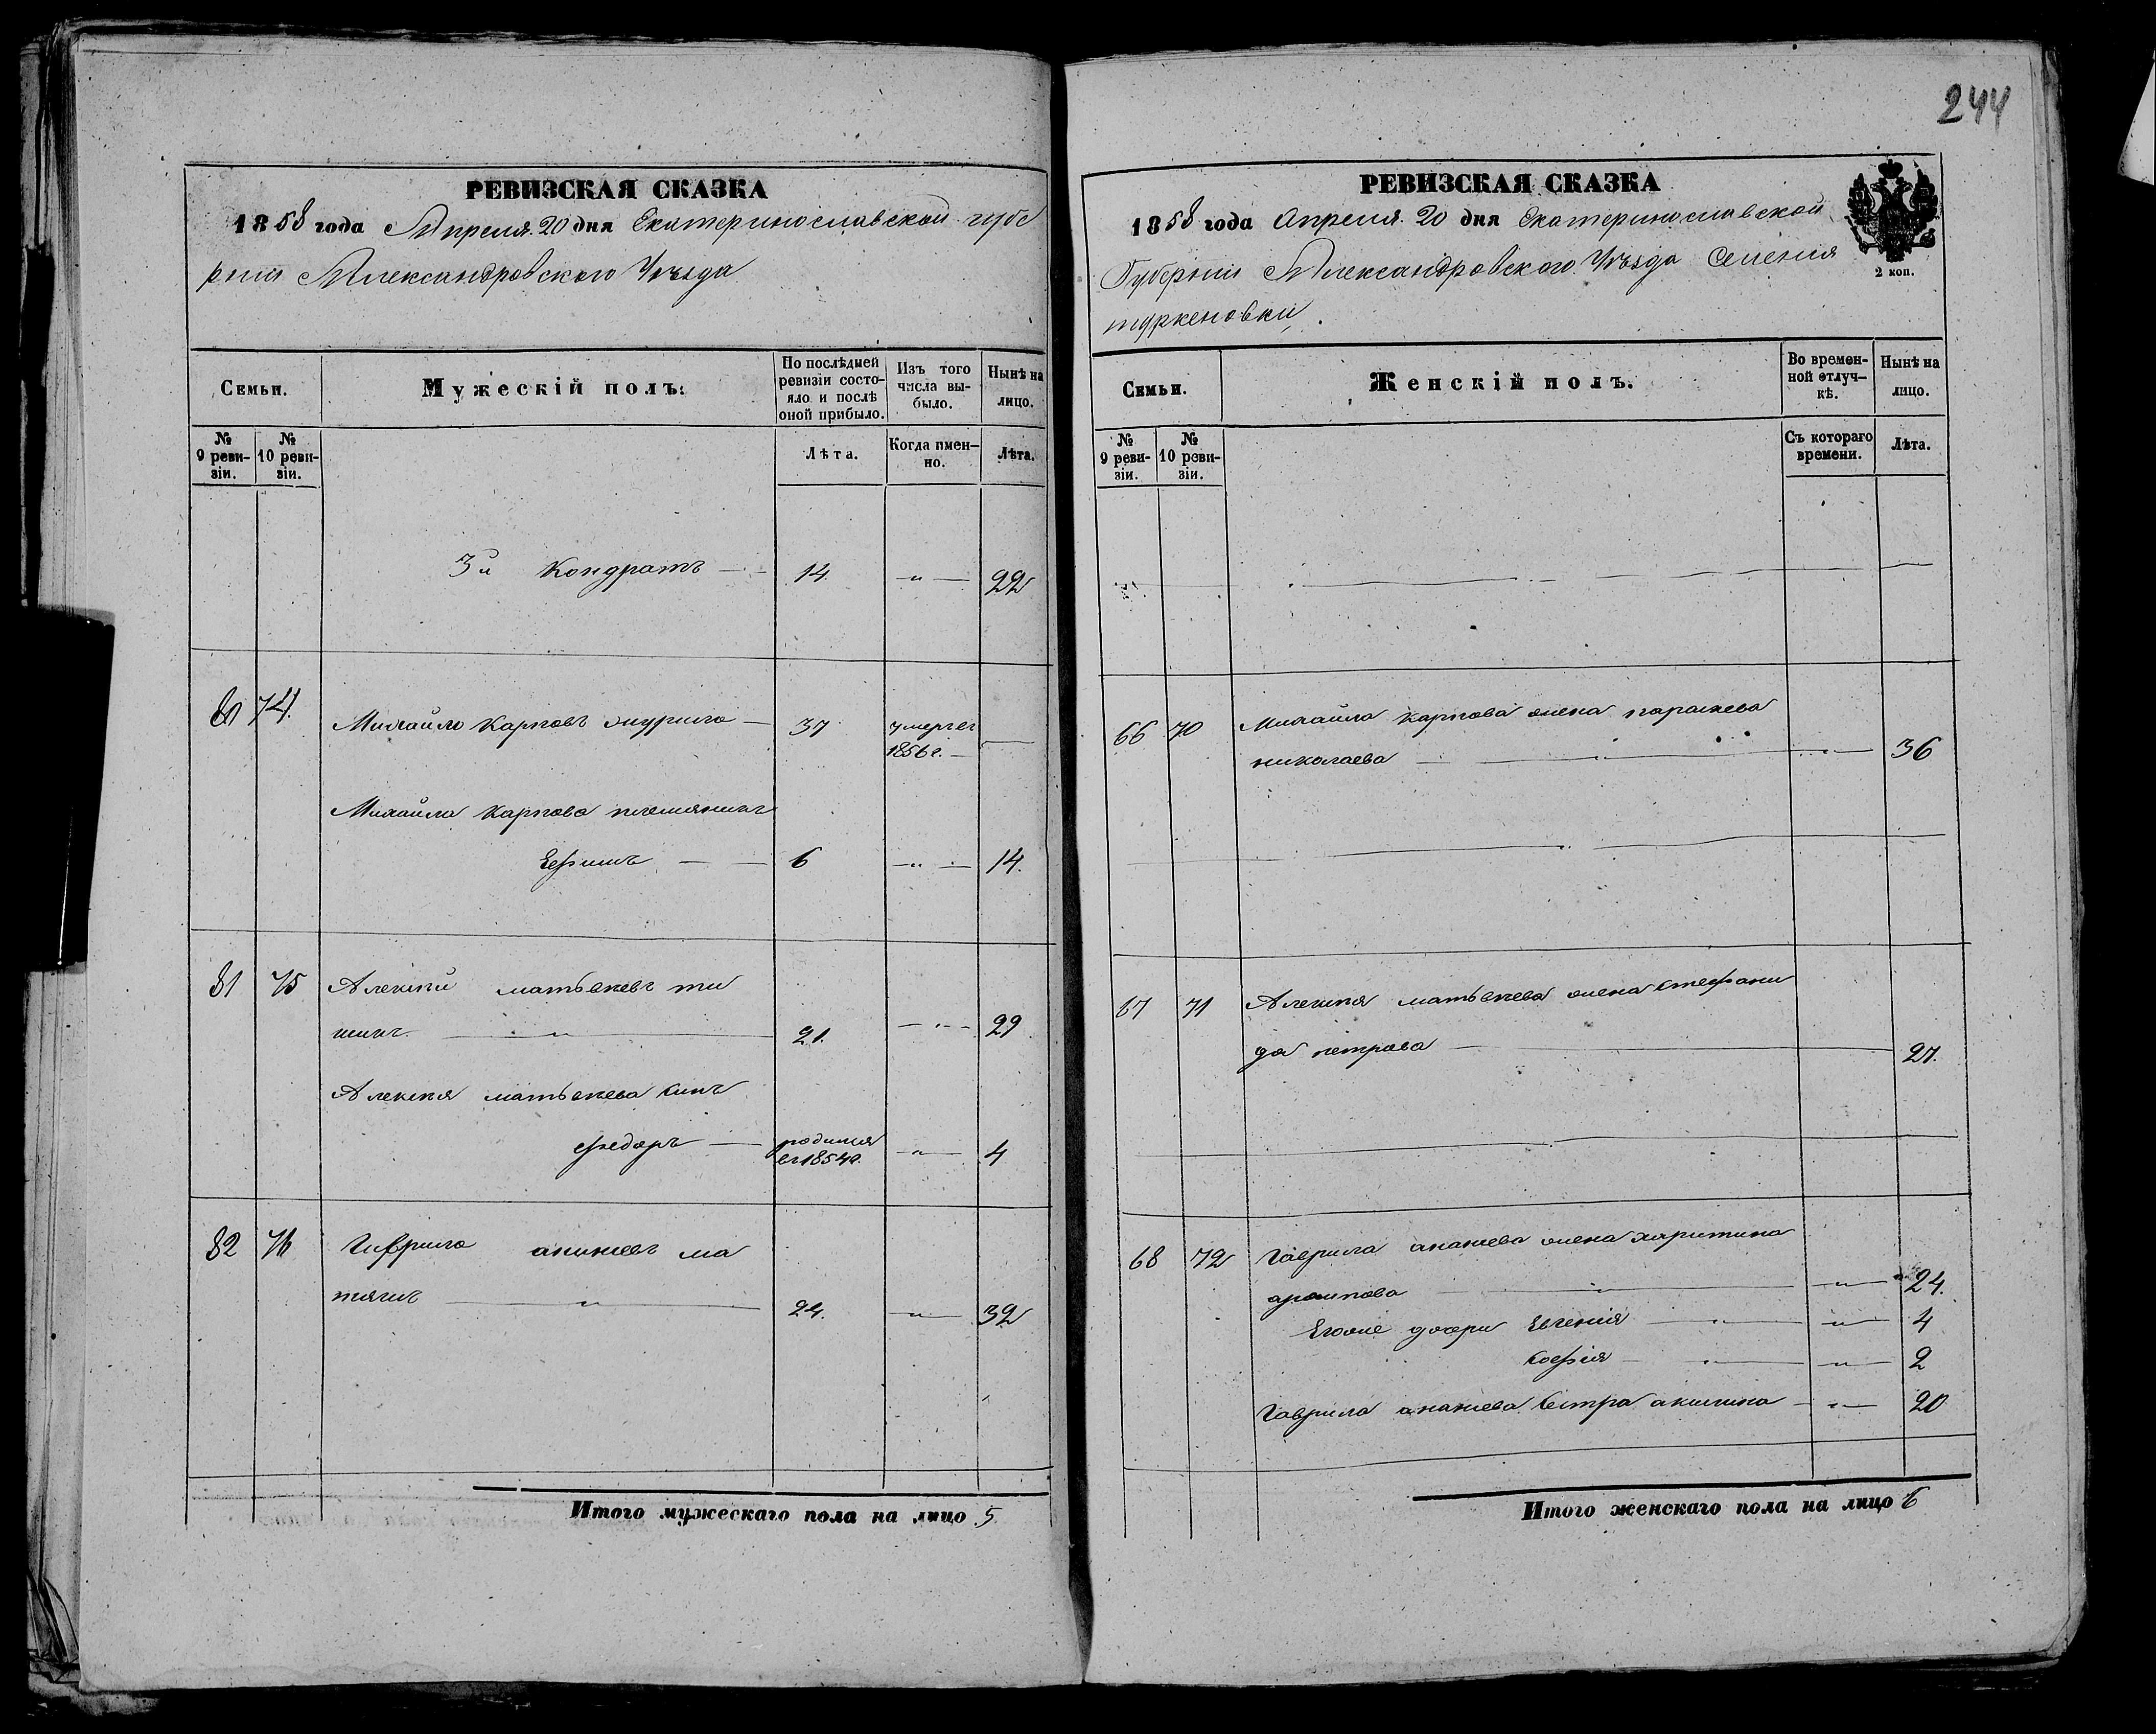 244
РЕВИЗСКАЯ СКАЗКА
1858 года Апреля 20 дня Екатеринославской губе
рнии Александровского Уѣзда
Семьи.
Мужескій полъ.
По послѣдней ревизіи состояло и послѣ оной прибыло.
Изъ того числа выбыло.
Нынѣ на лицо.
№ 9 ревизіи.
№ 10 ревизіи.
Лѣта.
Когда именно.
Лѣта.
3й Кондратъ — 14. — " — 22
80 74. Михайло Карповъ — 37 умеръ въ 1856 г. —
Михайла Карпова племяникъ
Ефимъ — 6 — " — 14.
81 75 Алексѣй матвѣевъ ти
шикъ. — " — 21. — " — 29
Алексѣя матвѣева сынъ
Федоръ — родился въ 1854 г. — " — 4
82 76 Гаврило ананиевъ ма
— " — 24. — " — 32
Итого мужескаго пола на лицо 5
РЕВИЗСКАЯ СКАЗКА
1858 года Апреля 20 дня Екатеринославской
Губернии Александровского Уѣзда Селения
туркеновки.
2 коп.
Семьи.
Женскій полъ.
Во временной отлучкѣ.
Нынѣ на лицо.
№ 9 ревизіи.
№ 10 ревизіи.
Съ котораго времени.
Лѣта.
66 70 Михайла карпова жена параскева
николаева — " — 36
67 71 Алексѣя матвѣева жена стефани
да петрова — 27.
68 72 Гаврила ананиева жена харитина
архипова — " — " — 24.
Егоже дочери Евгения — " — " — 4
софия — " — " — 2
Гаврила ананиева сестра акилина — " — 20
Итого женскаго пола на лицо 6